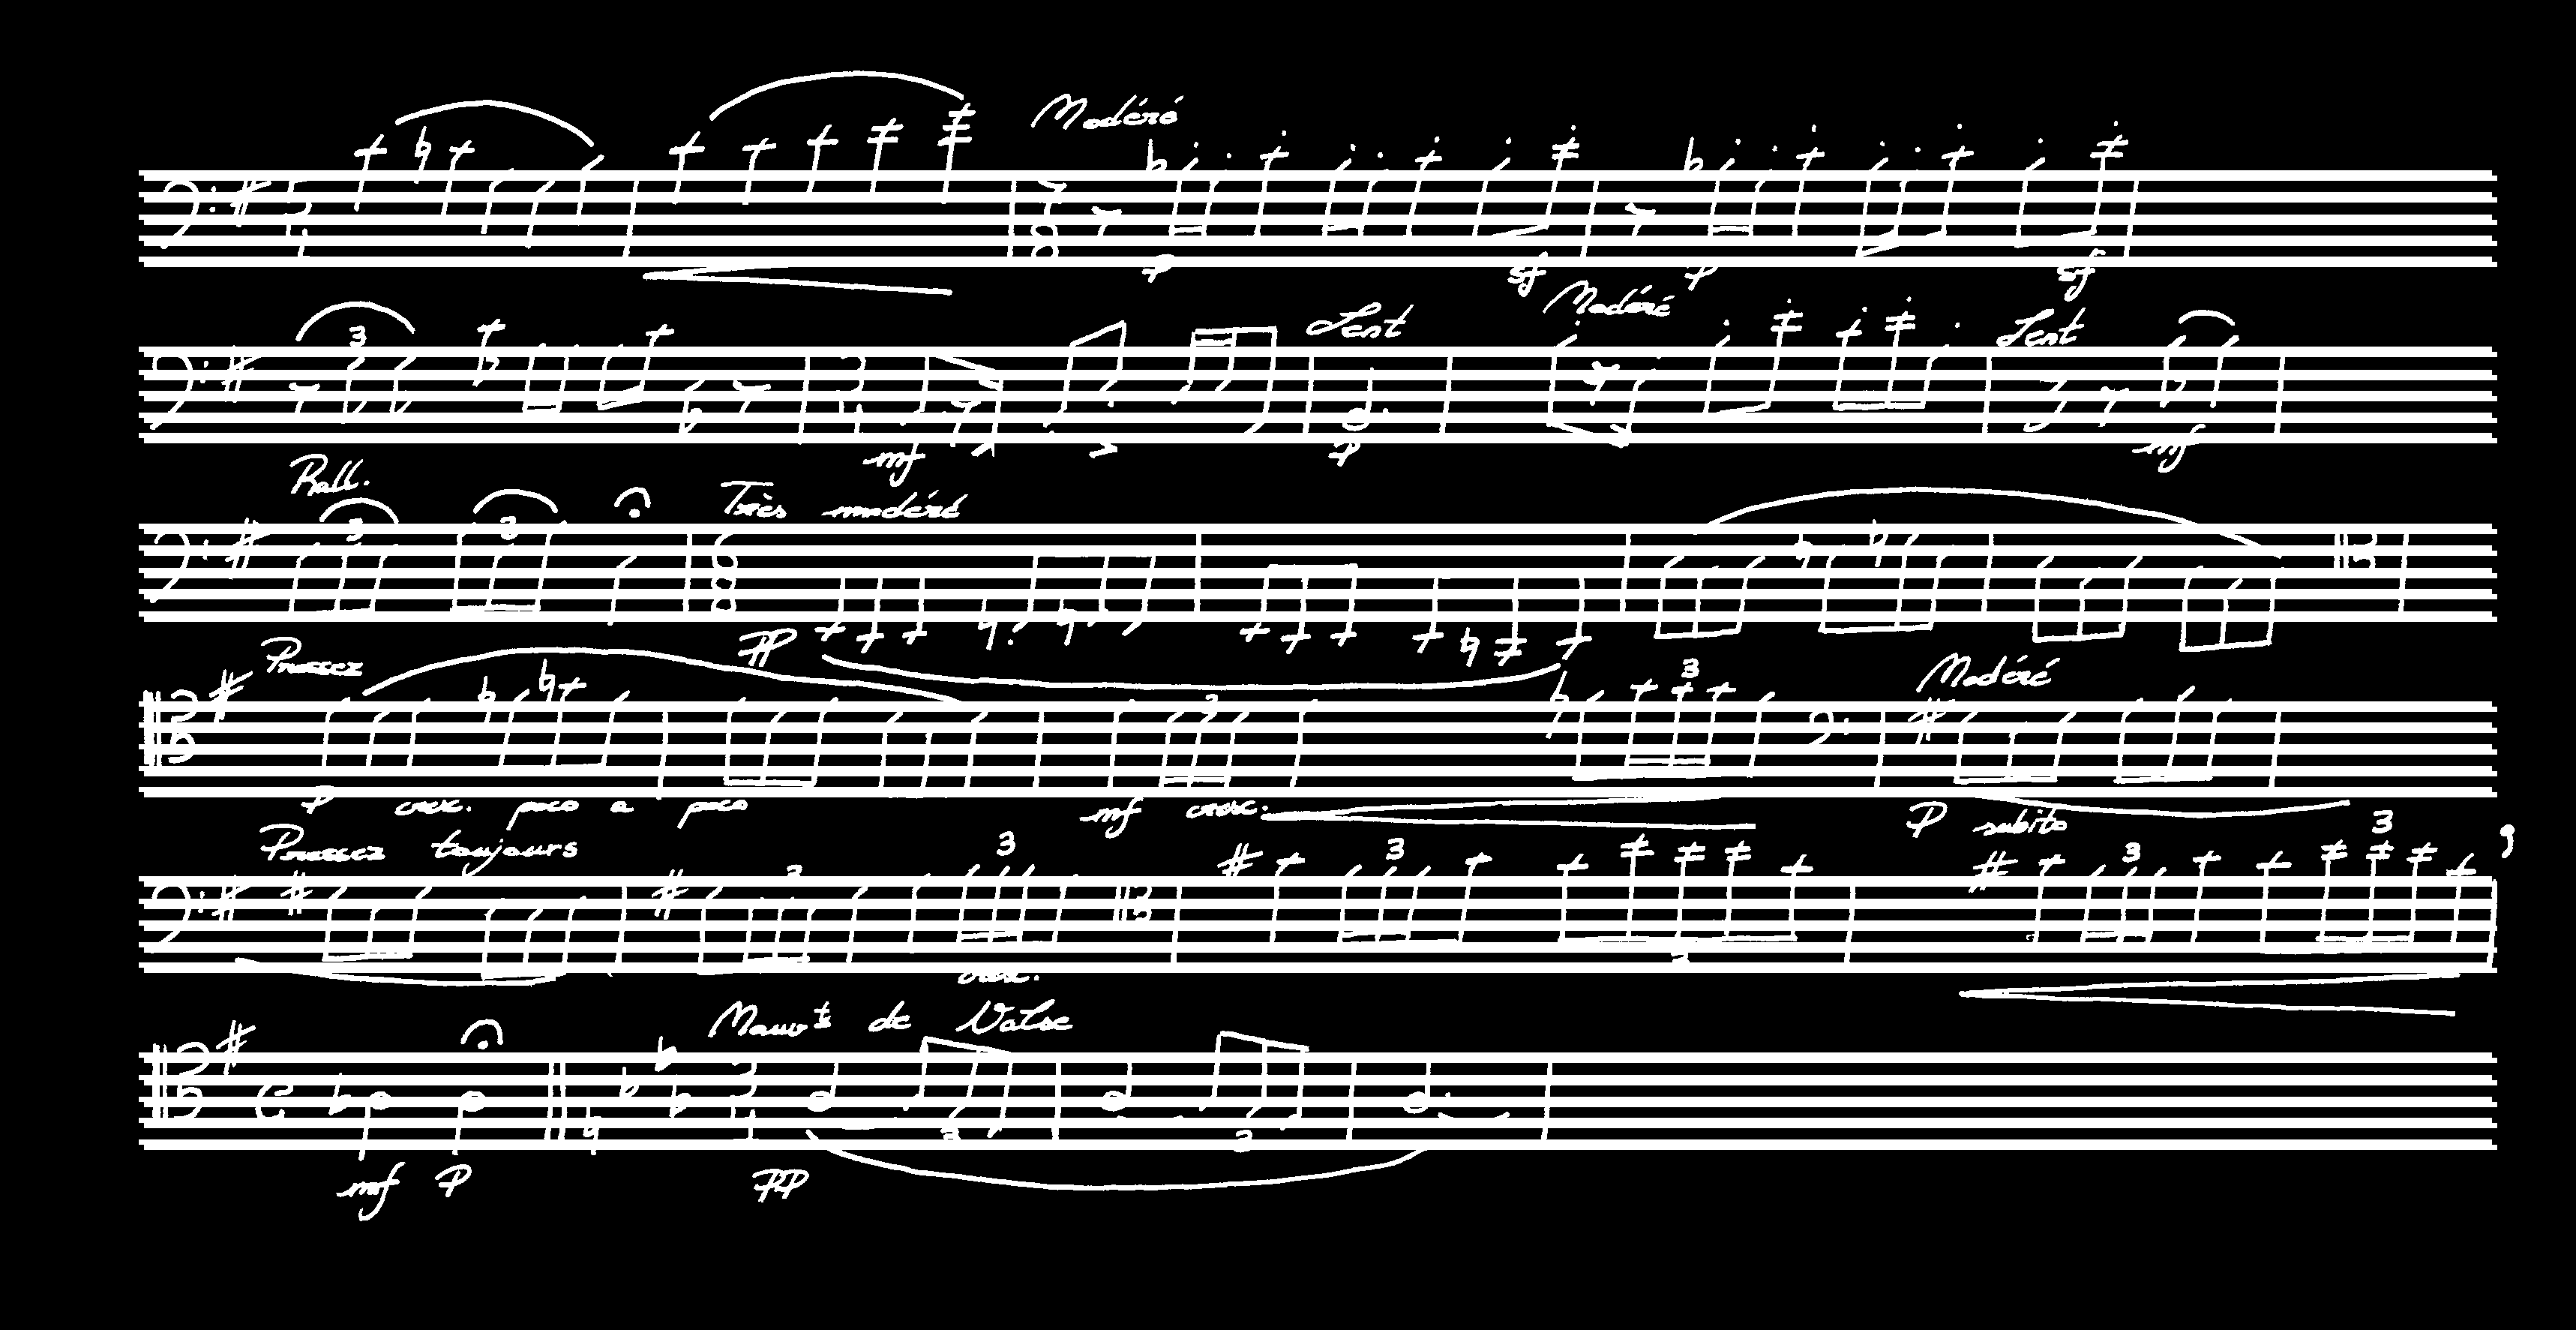 Modéré
p sf p sf
3 Lent Modéré Lent
mf p mf
Rall.
3 3 Très modéré
pp
Pressez 3 3 Modéré
p cresc. poco a poco mf cresc. p subito
Pressez toujours 3 3 3 3 3
3
cresc.
Mouvt de Valse
3 3
mf p pp